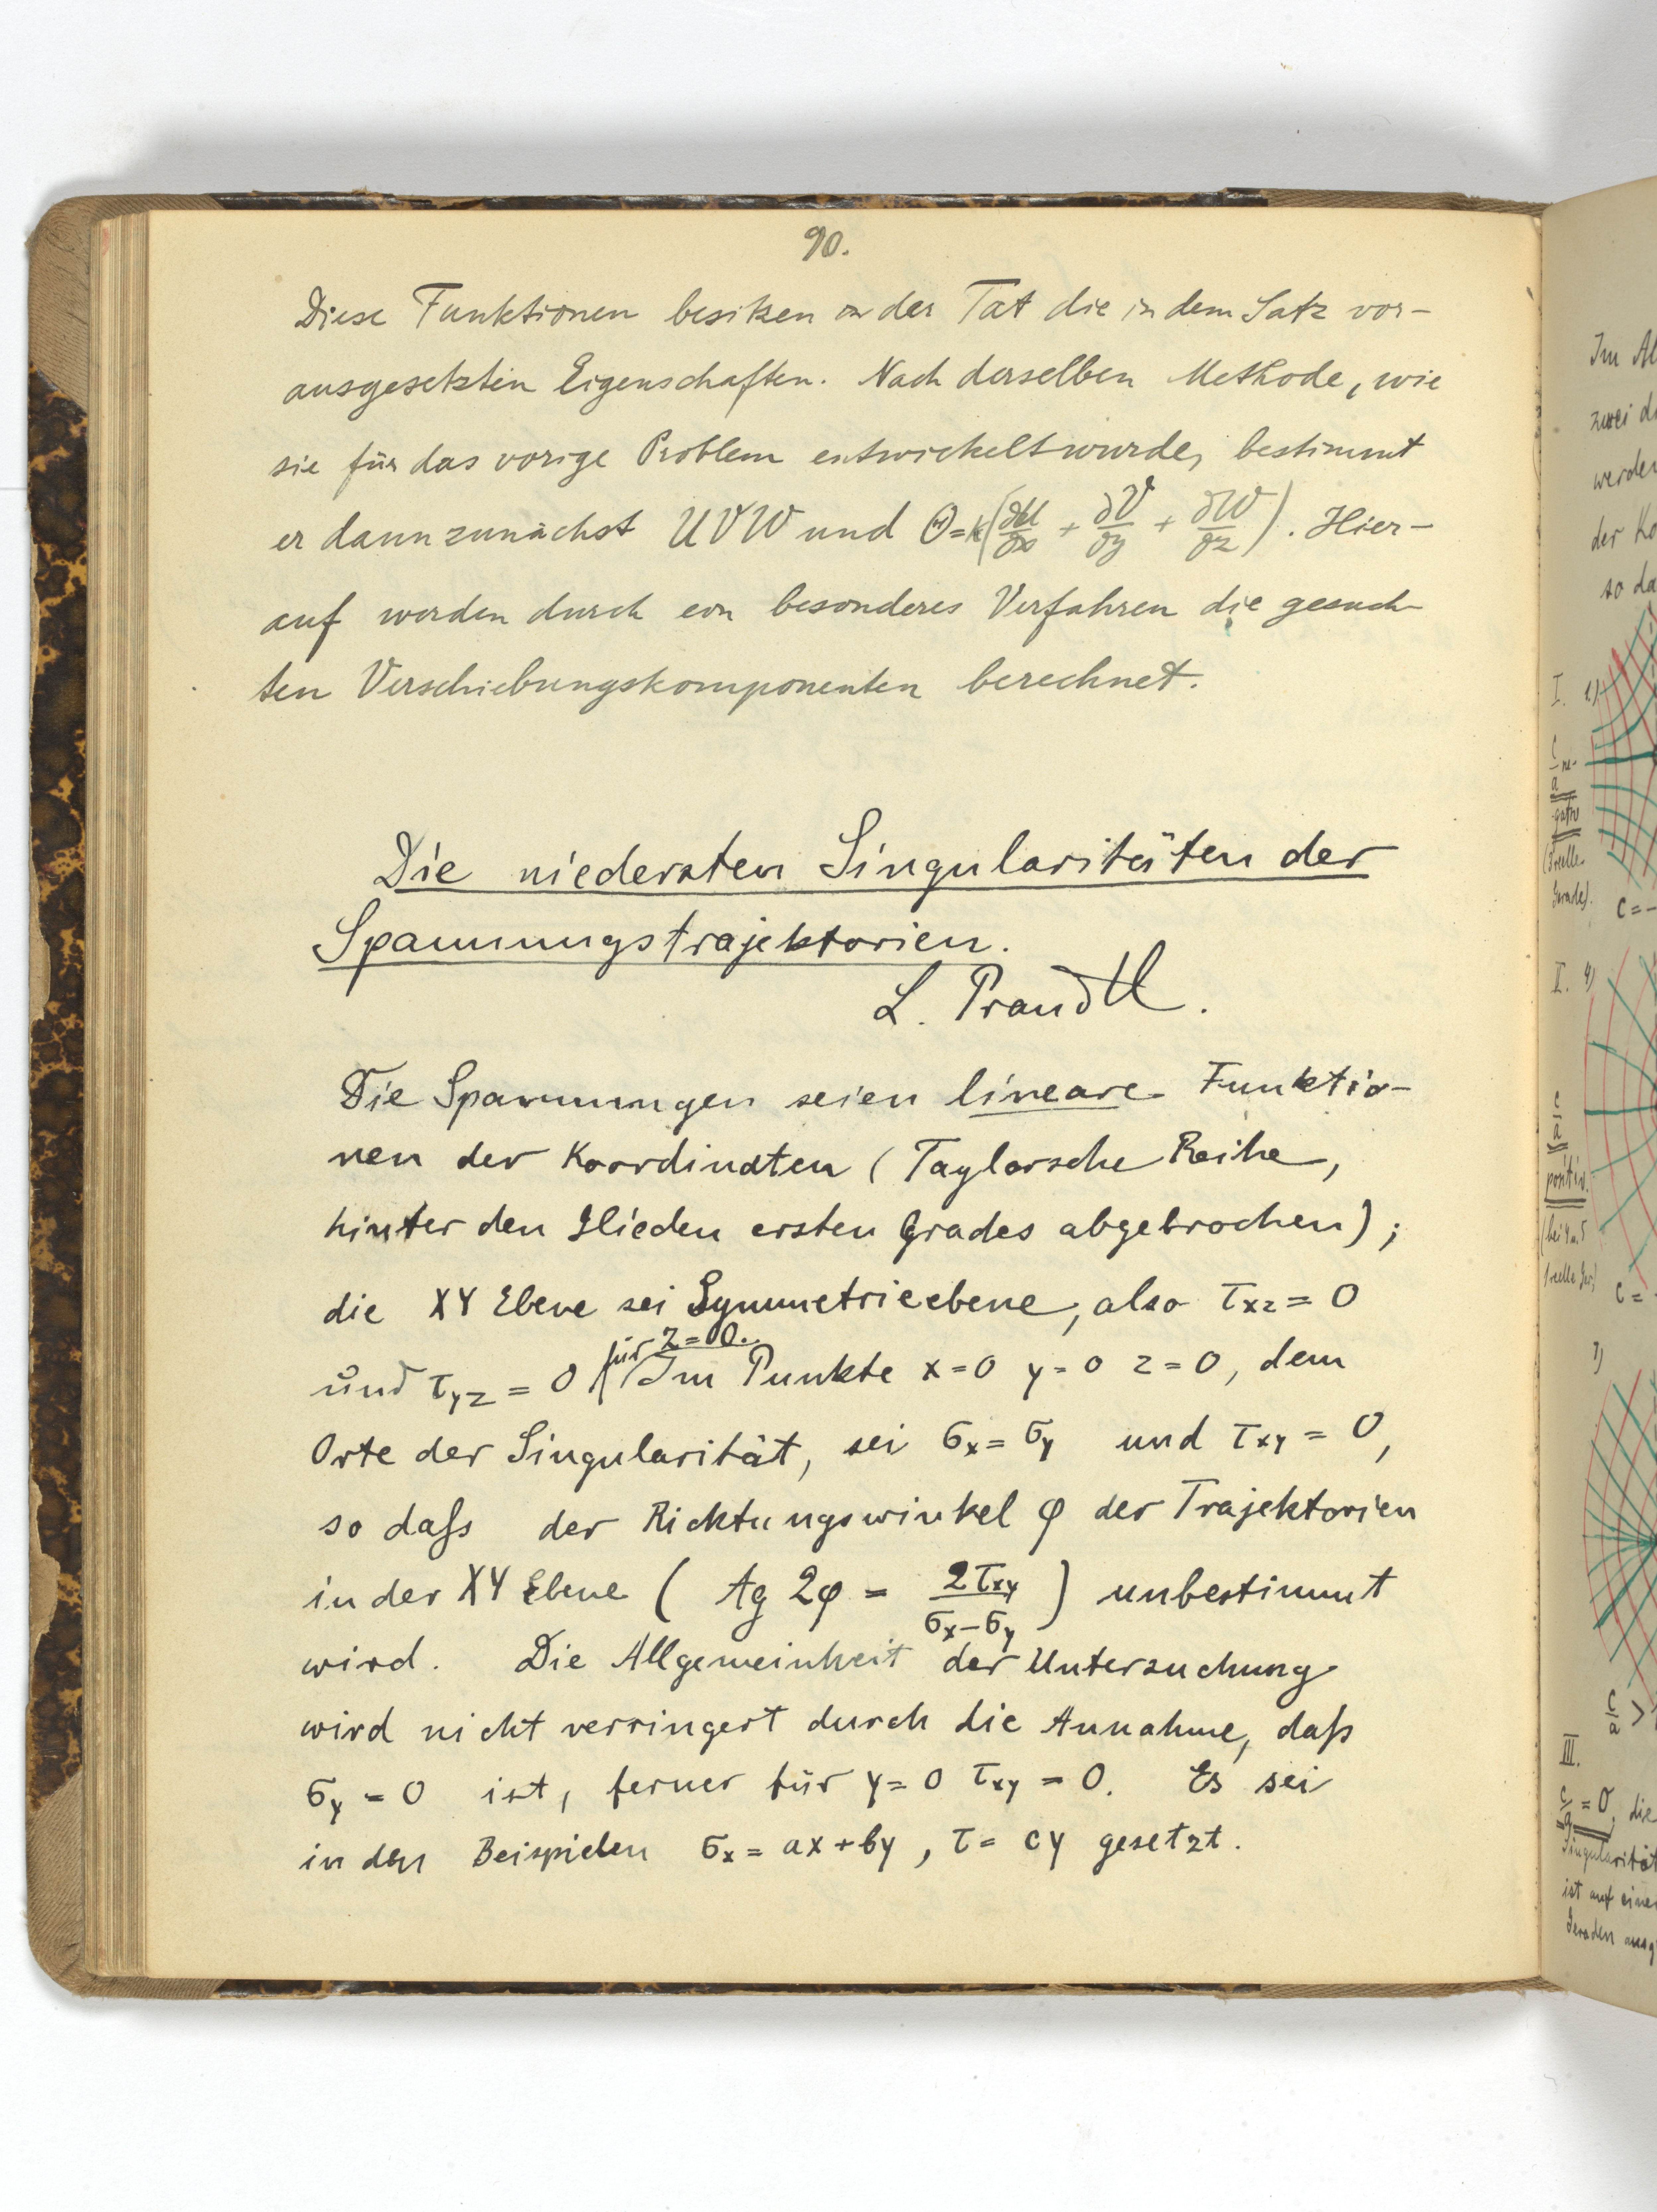 90.
Diese Funktionen besitzen in der Tat die in dem Satz vor-
ausgesetzten Eigenschaften. Nach derselben Methode, wie
sie für das vorige Problem entwickelt wurde, bestimmt
er dann zunächst U V W und Θ = k(∂U/∂x + ∂V/∂y + ∂W/∂z). Hier-
auf werden durch ein besonderes Verfahren die gesuch-
ten Verschiebungskomponenten berechnet.
Die niedersten Singularitäten der
Spannungstrajektorien.
L. Prandtl.
Die Spannungen seien lineare Funktio-
nen der Koordinaten (Taylorsche Reihe,
hinter den Glieden ersten Grades abgebrochen);
die XY Ebene sei Symmetrieebene, also τxz = 0
und τyz = 0 für z=0. Im Punkte x=0 y=0 z=0, dem
Orte der Singularität, sei σx = σy und τxy = 0,
so daſs der Richtungswinkel φ der Trajektorien
in der XY Ebene ( tg 2φ = 2τxy/(σx−σy) ) unbestimmt
wird. Die Allgemeinheit der Untersuchung
wird nicht verringert durch die Annahme, daß
σy = 0 ist, ferner für y=0 τxy = 0. Es sei
in den Beispielen σx = ax + by, τ = cy gesetzt.
Im Al
zwei d
werden
der Ko
so da
I. 1.)
c/a ne-
gativ
(3 reelle
Gerade).
c = -
II. 4)
c/a
positiv.
(bei 4 u. 5
1 reelle Ger.)
c =
7)
c/a >
III.
c/a = 0, die
Singularität
ist auf einer
Geraden ausg